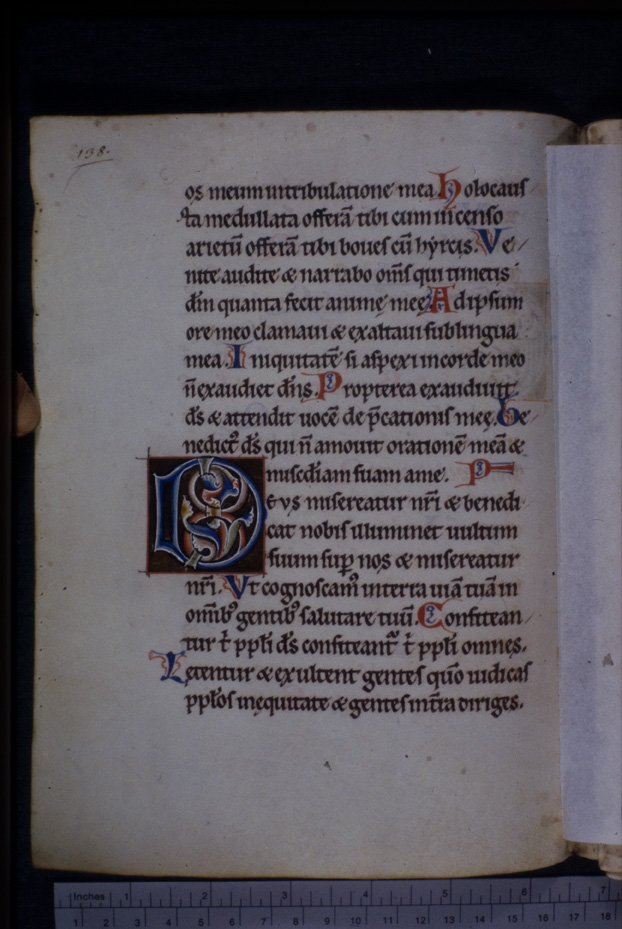 198.
os meum intribulatione mea Holocaus
ta medullata offerā tibi cum incenso
arietū offerā tibi boues cū hyrcis. Ve
nite audite & narrabo om̄s qui timetis
dīn quanta fecit animę meę. Ad ipsum
ore meo clamaui & exaltaui sublingua
mea. Iniquitatē si aspexi incorde meo
n̄ exaudiet dn̄s. Propterea exaudiuit
ds̄ & attendit uocē de p̄cationis meę. Be
nedict᾽ ds̄ qui n̄ amouit orationē meā &
miscd̄iam suam ame. P
Deus misereatur nr̄i & benedi
cat nobis illuminet uultum
suum sup̄ nos & misereatur
nr̄i. Vt cognoscam᾽ interra uiā tuā in
omīb᾽ gentib᾽ salutare tuū. Confitean
tur t̄ ppl̄i ds̄ confiteant᾽ t̄ ppl̄i omnes.
Letentur & exultent gentes qūo iudicas
ppl̄os inęquitate & gentes int̄ra diriges.
Inches 1 2 3 4 5 6 7
1 2 3 4 5 6 7 8 9 10 11 12 13 14 15 16 17 18